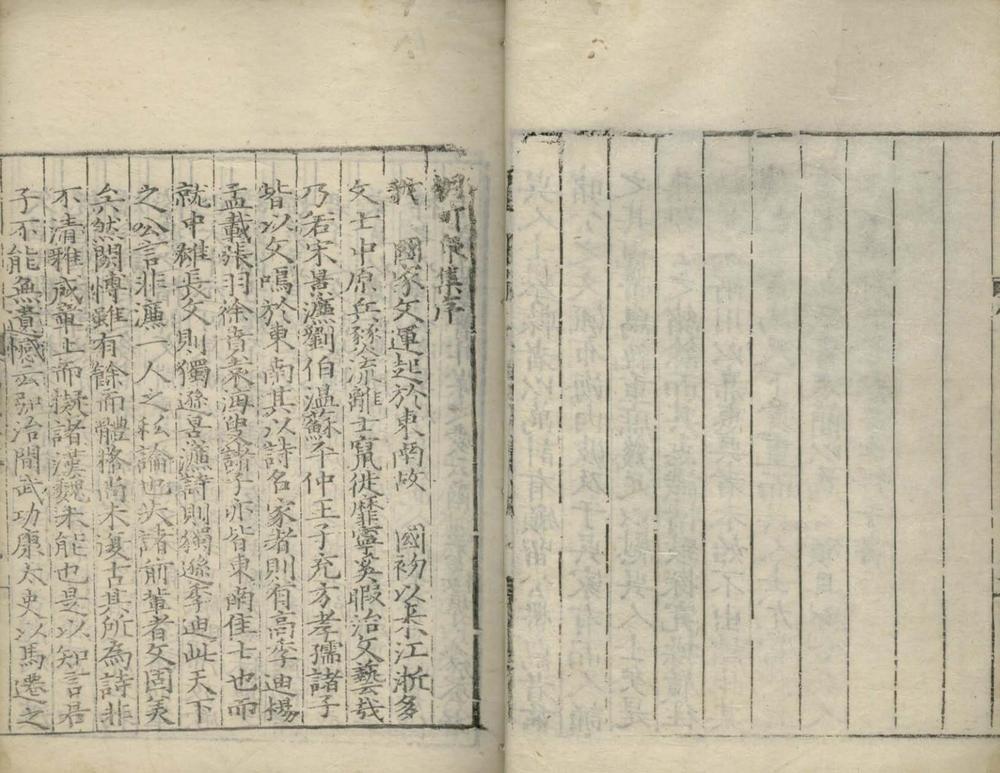 集序
我　國家文運起於東南故　國初以來江浙多
文士中原兵燹流離士竄徙靡寧奚暇治文藝哉
乃若宋景濂劉伯溫蘇平仲王子充方孝孺諸子
皆以文鳴於東南其以詩名家者則有高季迪楊
孟載張羽徐賁袁海叟諸子亦皆東南佳士也而
就中稱長文則獨遜景濂詩則獨遜季迪此天下
之公言非濂一人之私論也夫諸前輩者文固美
矣然閎博雖有餘而體格尚未復古其所為詩非
不清雅咸重止而擬諸漢魏未能也是以知言君
子不能無遺憾云弘治間武功康太史以馬遷之